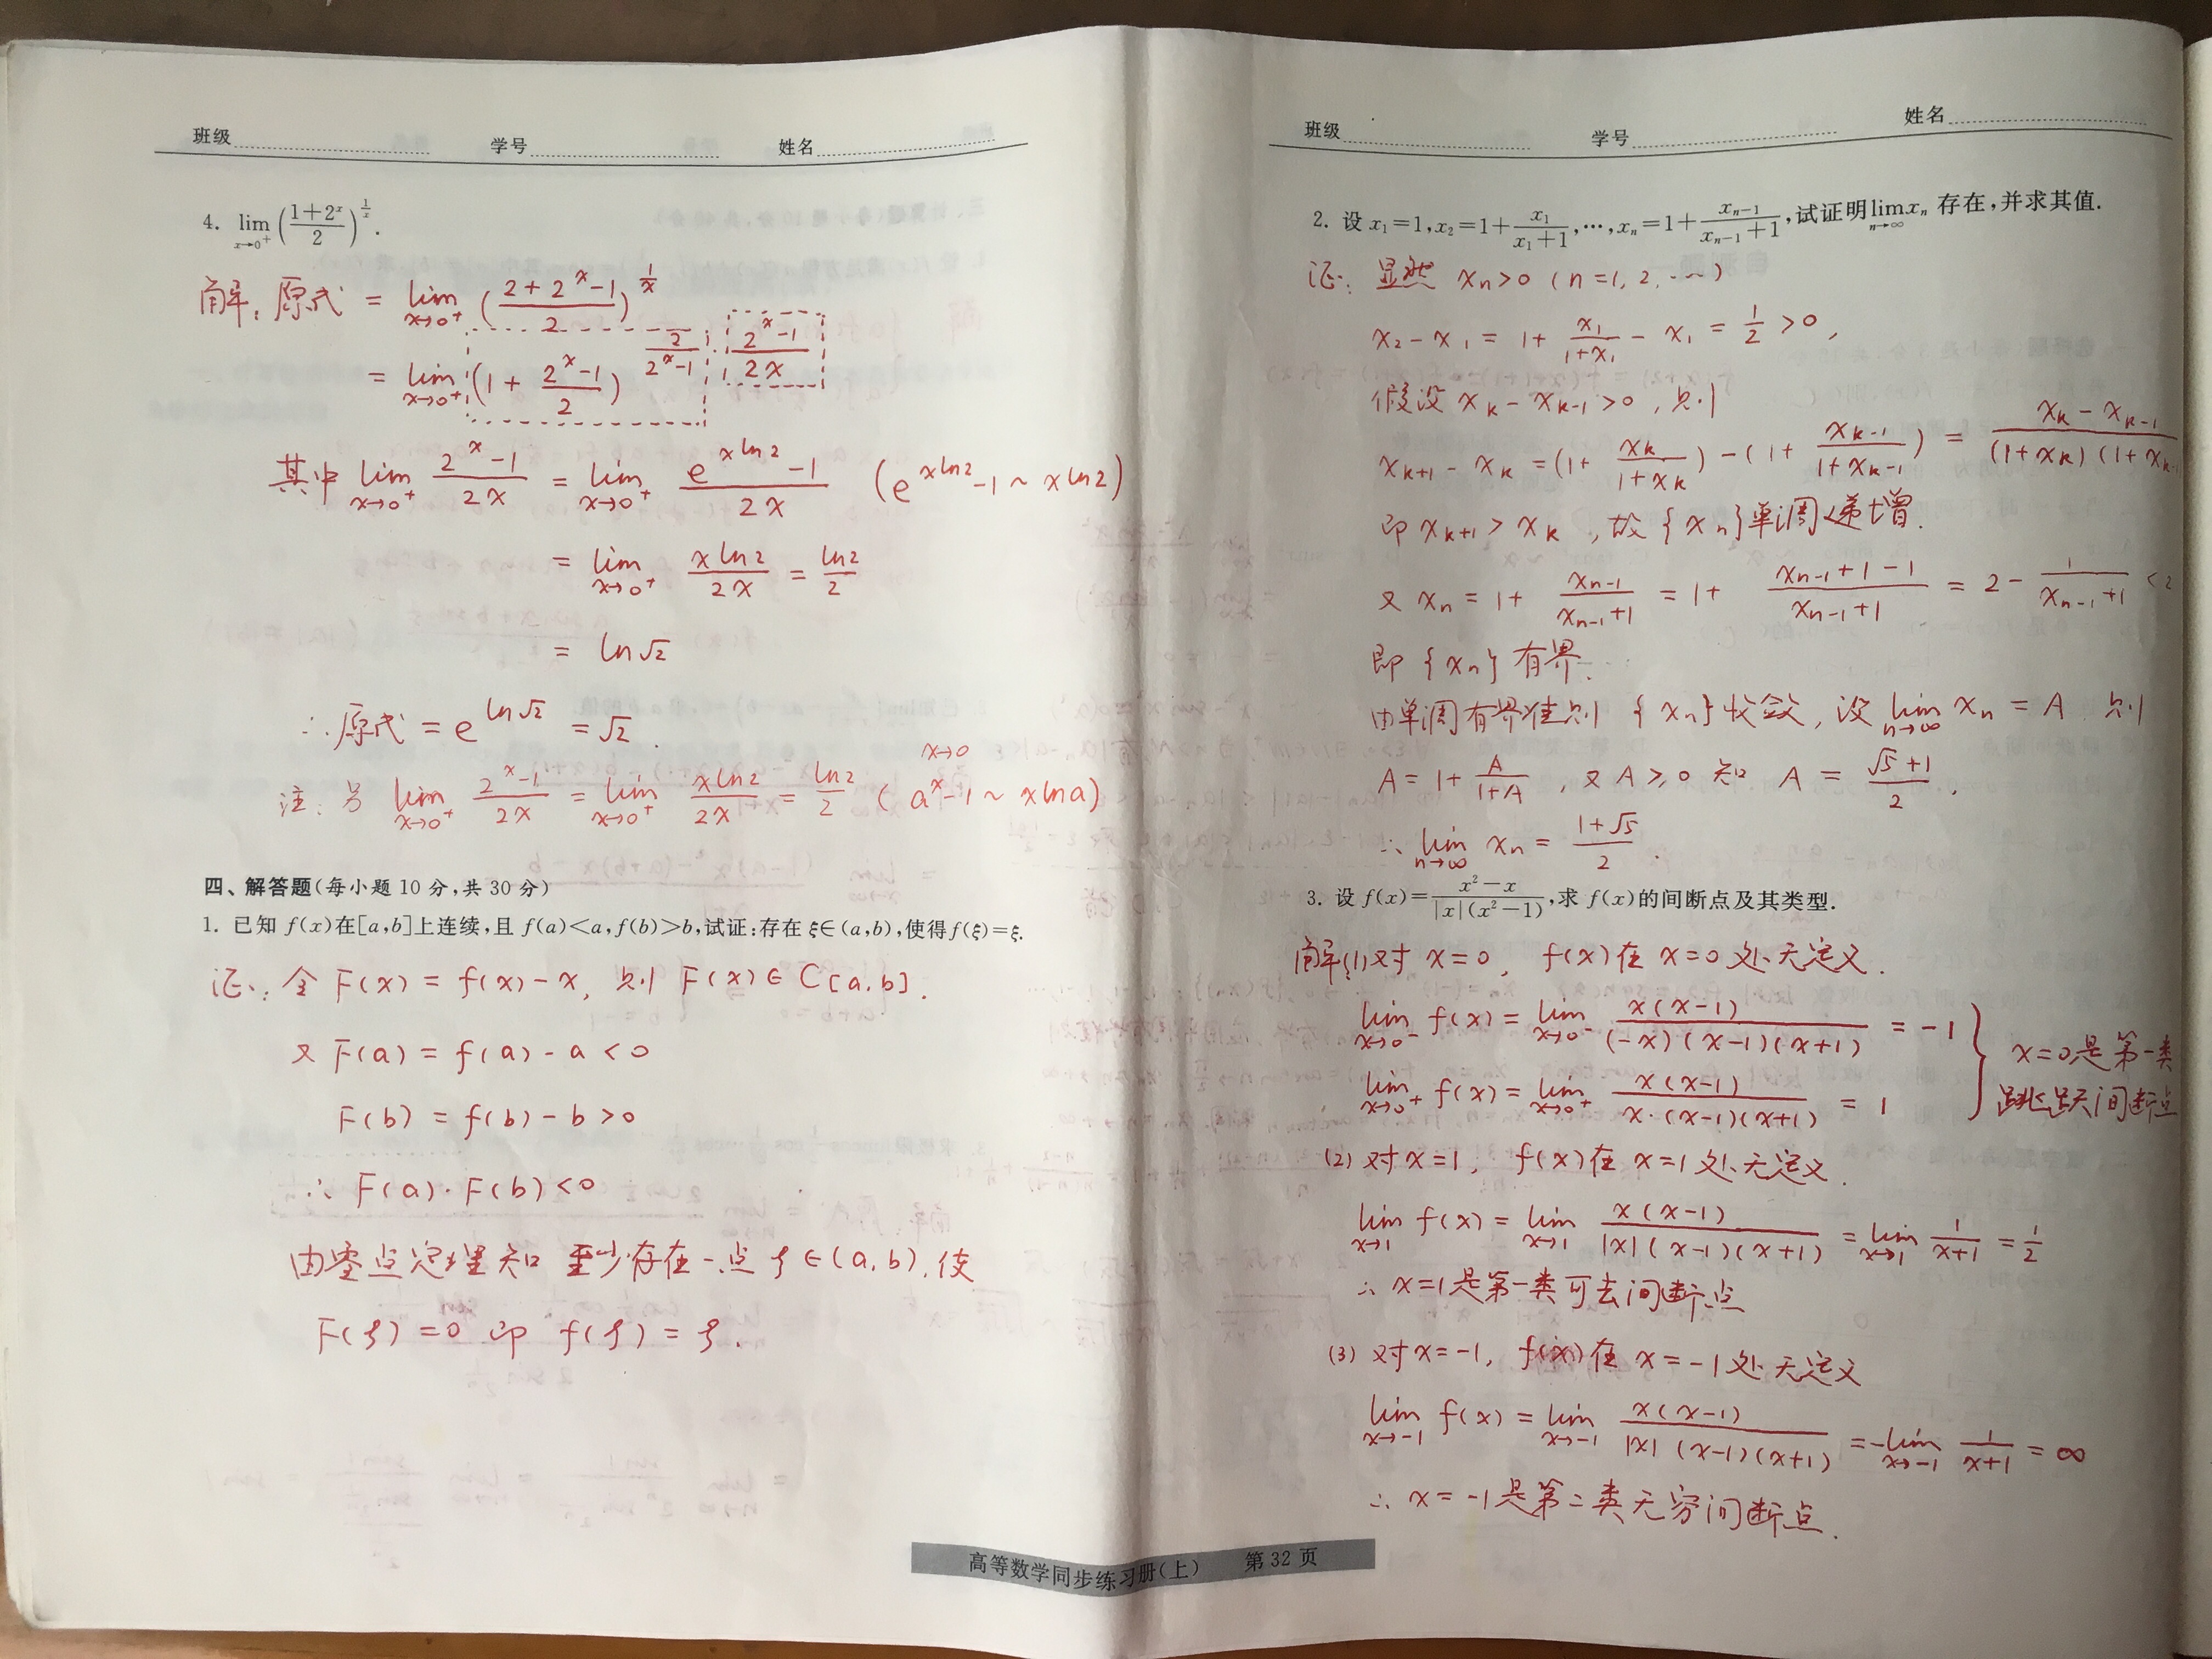 班级 学号 姓名
4. lim_{x→0⁺} ((1+2^x)/2)^{1/x}.
解: 原式 = lim_{x→0⁺} ((2+2^x-1)/2)^{1/x}
= lim_{x→0⁺} (1+(2^x-1)/2)^{2/(2^x-1) · (2^x-1)/(2x)}
其中 lim_{x→0⁺} (2^x-1)/(2x) = lim_{x→0⁺} (e^{xln2}-1)/(2x) (e^{xln2}-1 ~ xln2)
= lim_{x→0⁺} (xln2)/(2x) = ln2/2
= ln√2
∴ 原式 = e^{ln√2} = √2.
注: 另 lim_{x→0⁺} (2^x-1)/(2x) = lim_{x→0⁺} (xln2)/(2x) = ln2/2 (x→0 a^x-1 ~ xlna)
四、解答题(每小题 10 分,共 30 分)
1. 已知 f(x)在[a,b]上连续,且 f(a)<a,f(b)>b,试证:存在 ξ∈(a,b),使得f(ξ)=ξ.
证: 令 F(x) = f(x)-x, 则 F(x)∈C[a,b].
又 F(a) = f(a)-a<0
F(b) = f(b)-b>0
∴ F(a)·F(b)<0
由零点定理知 至少存在一点 ξ∈(a,b), 使
F(ξ)=0 即 f(ξ)=ξ.
班级 学号 姓名
2. 设 x₁=1,x₂=1+x₁/(x₁+1),…,x_n=1+x_{n-1}/(x_{n-1}+1),试证明lim_{n→∞}x_n 存在,并求其值.
证: 显然 x_n>0 (n=1,2,…)
x₂-x₁ = 1+x₁/(1+x₁)-x₁ = 1/2 >0,
假设 x_k-x_{k-1}>0, 则
x_{k+1}-x_k =(1+x_k/(1+x_k))-(1+x_{k-1}/(1+x_{k-1})) = (x_k-x_{k-1})/((1+x_k)(1+x_{k-
即 x_{k+1}>x_k, 故{x_n}单调递增.
又 x_n = 1+x_{n-1}/(x_{n-1}+1) = 1+(x_{n-1}+1-1)/(x_{n-1}+1) = 2-1/(x_{n-1}+1) <2
即 {x_n} 有界.
由单调有界准则 {x_n}收敛, 设 lim_{n→∞} x_n = A 则
A = 1+A/(1+A), 又 A≥0 知 A = (√5+1)/2,
∴ lim_{n→∞} x_n = (1+√5)/2.
3. 设 f(x)=(x²-x)/(|x|(x²-1)),求 f(x)的间断点及其类型.
解:(1)对 x=0, f(x)在 x=0 处无定义.
lim_{x→0⁻} f(x) = lim_{x→0⁻} x(x-1)/((-x)(x-1)(x+1)) = -1
lim_{x→0⁺} f(x) = lim_{x→0⁺} x(x-1)/(x·(x-1)(x+1)) = 1
} x=0是第一类
跳跃间断点
(2) 对 x=1, f(x)在 x=1 处无定义.
lim_{x→1} f(x) = lim_{x→1} x(x-1)/(|x|(x-1)(x+1)) = lim_{x→1} 1/(x+1) = 1/2
∴ x=1是第一类可去间断点
(3) 对 x=-1, f(x)在 x=-1 处无定义
lim_{x→-1} f(x) = lim_{x→-1} x(x-1)/(|x|(x-1)(x+1)) = -lim_{x→-1} 1/(x+1) = ∞
∴ x=-1是第二类无穷间断点.
高等数学同步练习册(上) 第 32 页